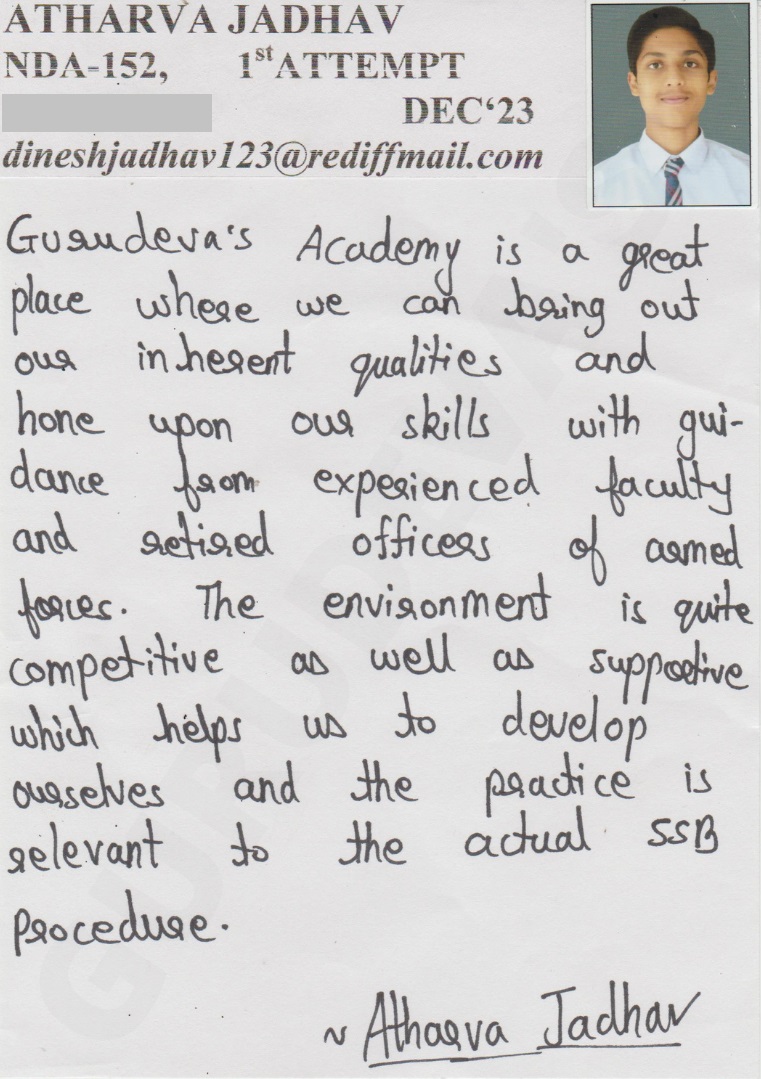 ATHARVA JADHAV
NDA-152, 1st ATTEMPT
DEC‘23
dineshjadhav123@rediffmail.com
Gurudeva's Academy is a great
place where we can bring out
our inherent qualities and
hone upon our skills with gui-
dance from experienced faculty
and retired officers of armed
forces. The environment is quite
competitive as well as supportive
which helps us to develop
ourselves and the practice is
relevant to the actual SSB
procedure.
~ Atharva Jadhav